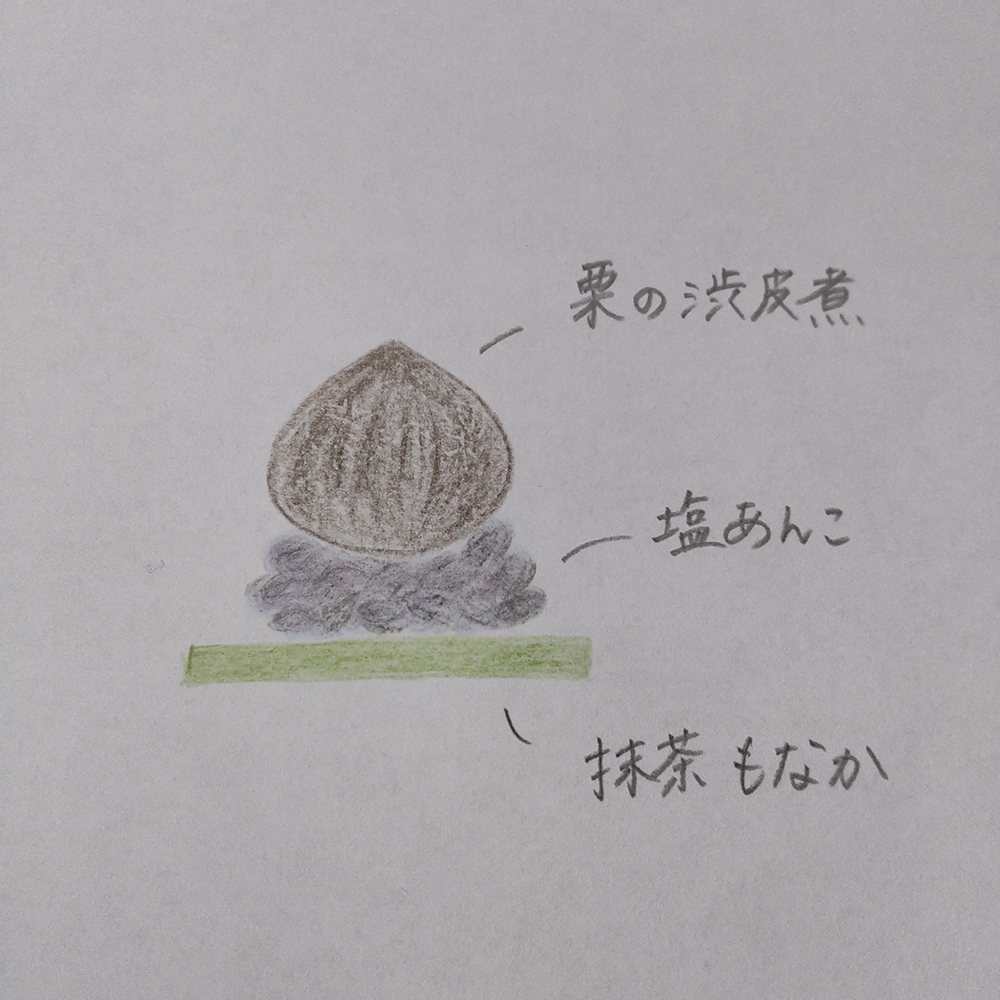 栗の渋皮煮
塩あんこ
抹茶もなか